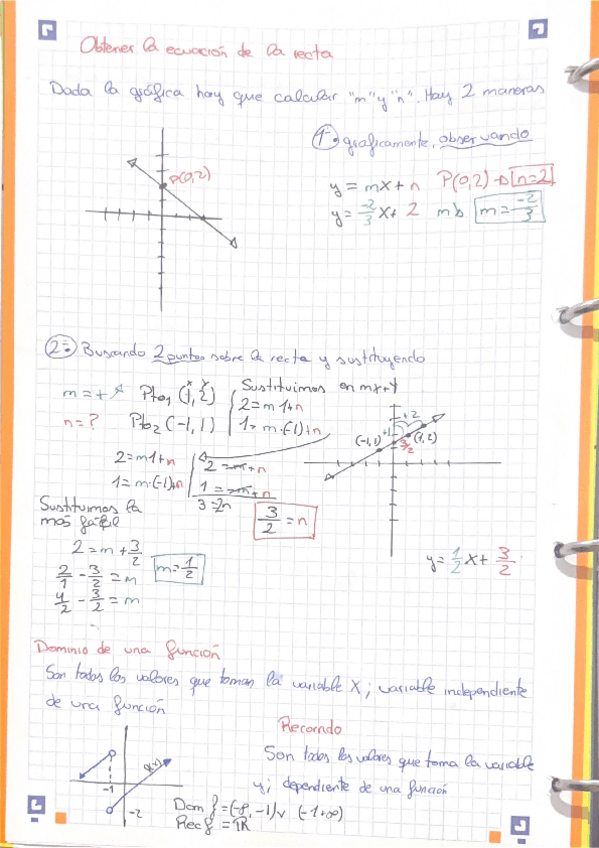 Obtener la ecuación de la recta
Dada la gráfica hay que calcular "m" y "n". Hay 2 maneras
1. graficamente, observando
P(0,2)
y = mx + n P(0,2) → n=2
y = -2/3 x + 2 m = -2/3
2. Buscando 2 puntos sobre la recta y sustituyendo
m = + Pto1 (1, 2) Sustituimos en mx+y
x y
n = ? Pto2 (-1, 1)
2 = m 1+n
1 = m·(-1)+n
+2
(-1, 1) +1 (1, 2)
3/2
2 = m1+n 2 = m+n
1 = m·(-1)+n 1 = -m+n
3 = 2n
3/2 = n
Sustituimos la
mas fácil
2 = m + 3/2
m = 1/2
2/1 - 3/2 = m
4/2 - 3/2 = m
y = 1/2 x + 3/2
Dominio de una función
Son todos los valores que toman la variable X; variable independiente
de una función
Recorrido
Son todos los valores que toma la variable
y; dependiente de una función
-1
-2
Dom f = (-∞, -1) ∪ (-1+∞)
Rec f = ℝ